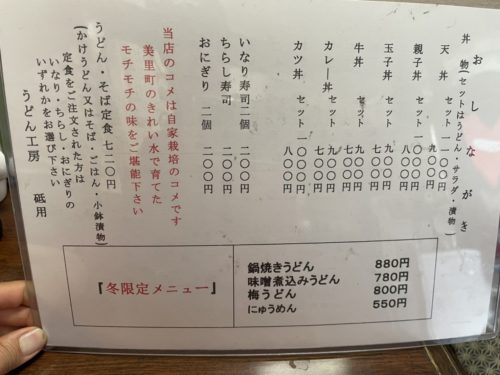 おしながき
丼物(セットはうどん・サラダ・漬物)
天丼 九〇〇円
セット 一一〇〇円
親子丼 八〇〇円
セット 一〇〇〇円
玉子丼 七〇〇円
セット 九〇〇円
牛丼 七〇〇円
セット 九〇〇円
カレー丼 七〇〇円
セット 九〇〇円
カツ丼 八〇〇円
セット 一〇〇〇円
いなり寿司二個 二〇〇円
ちらし寿司 二〇〇円
おにぎり 二個 二〇〇円
当店のコメは自家栽培のコメです
美里町のきれい水で育てた
モチモチの味をご堪能下さい
うどん・そば定食 七二〇円
(かけうどん又はそば・ごはん・小鉢漬物)
定食をご注文された方は
いなり・ちらし・おにぎりの
いずれかをお選び下さい
うどん工房 砥用
『冬限定メニュー』
鍋焼きうどん 880円
味噌煮込みうどん 780円
梅うどん 800円
にゅうめん 550円